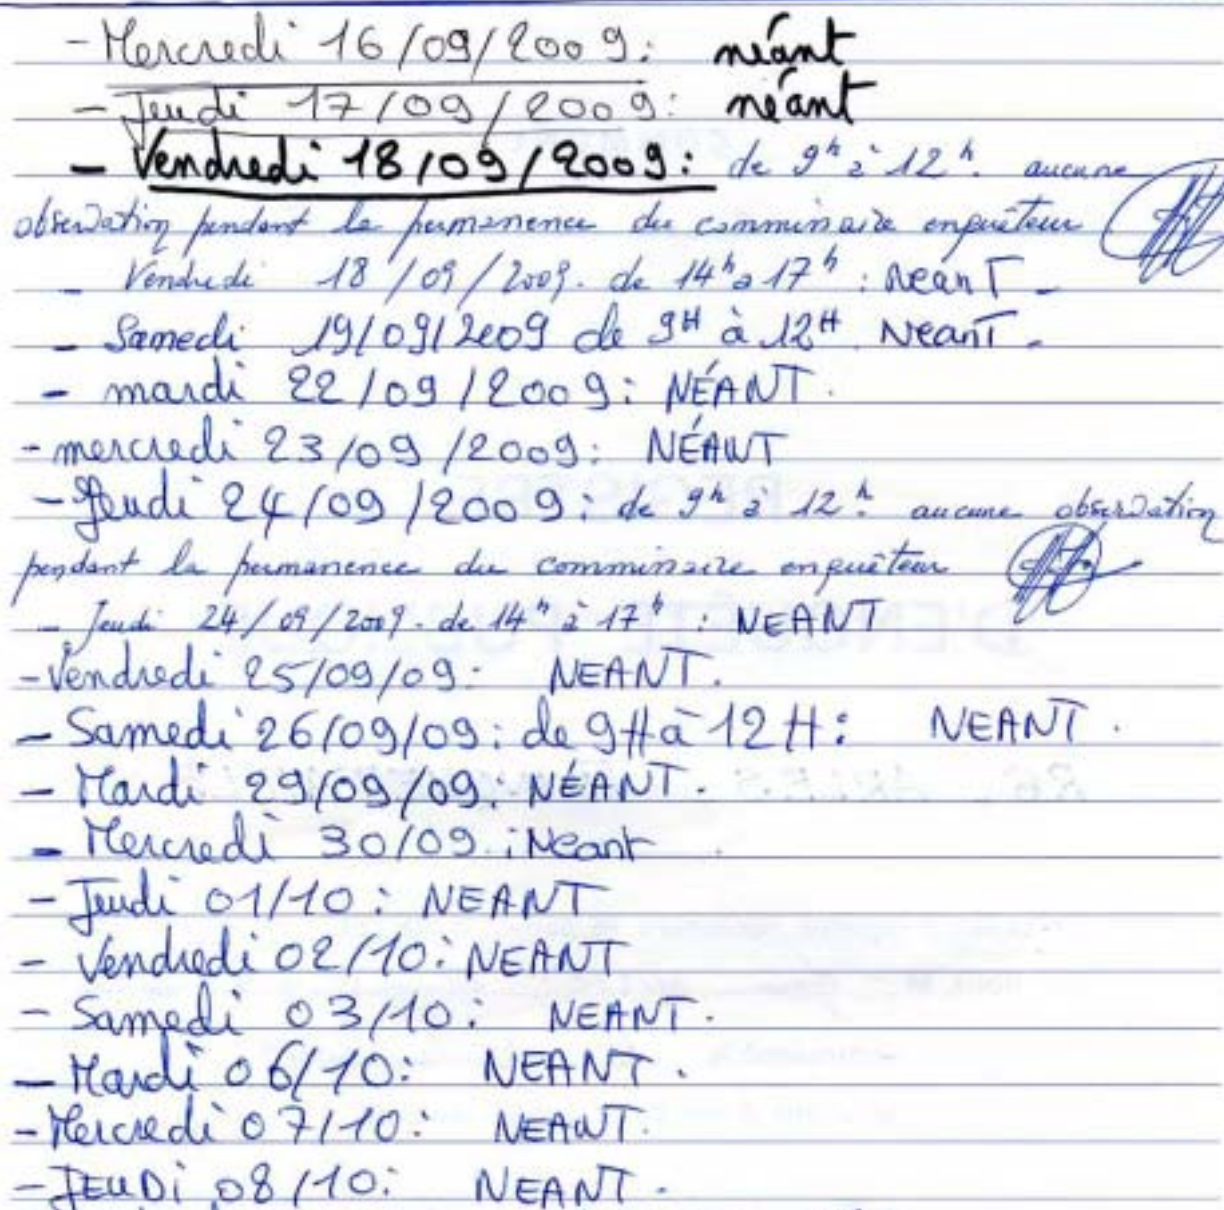 - Mercredi 16/09/2009: néant
- Jeudi 17/09/2009: néant
- Vendredi 18/09/2009: de 9h à 12h. aucune
observation pendant la permanence du commissaire enquêteur
- Vendredi 18/09/2009. de 14h à 17h : Neant -
- Samedi 19/09/2009 de 9H à 12H. Neant -
- mardi 22/09/2009: NÉANT.
- mercredi 23/09/2009: NÉANT
- Jeudi 24/09/2009: de 9h à 12h. aucune observation
pendant la permanence du commissaire enquêteur
- Jeudi 24/09/2009. de 14h à 17h : NEANT
- Vendredi 25/09/09: NEANT.
- Samedi 26/09/09: de 9H à 12H: NEANT.
- Mardi 29/09/09: NÉANT.
- Mercredi 30/09: Neant
- Jeudi 01/10: NEANT
- Vendredi 02/10: NEANT
- Samedi 03/10: NEANT.
- Mardi 06/10: NEANT.
- Mercredi 07/10: NEANT.
- JEUDi 08/10: NEANT.